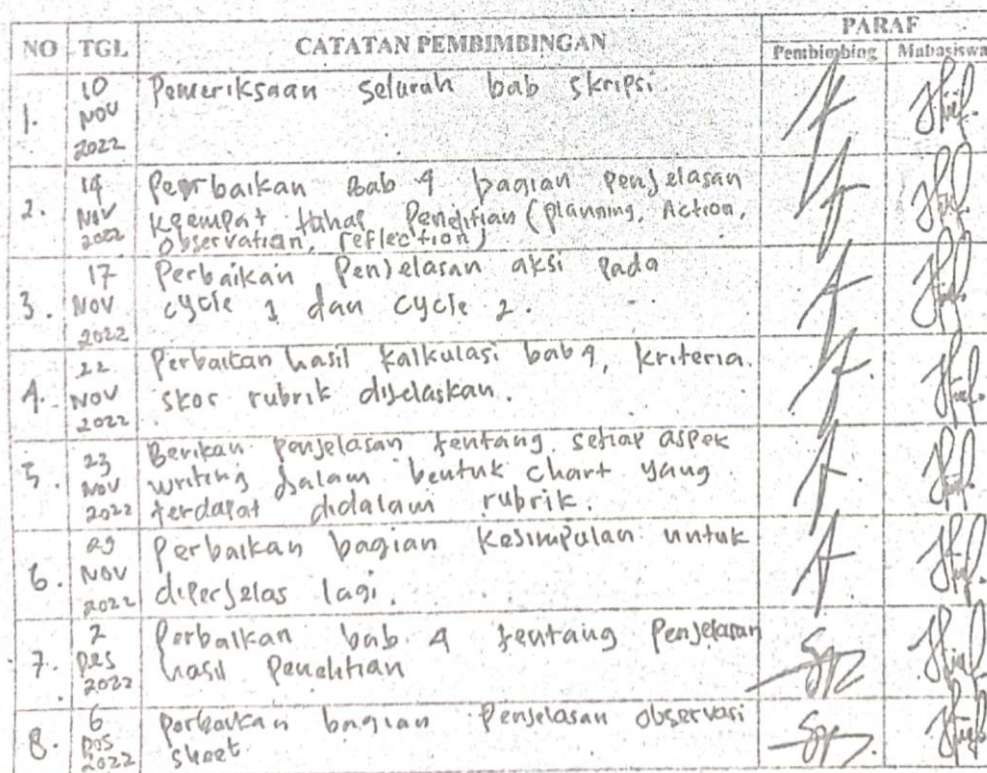 NO TGL CATATAN PEMBIMBINGAN PARAF
Pembimbing Mahasiswa
1. 10 NOV 2022
Pemeriksaan seluruh bab skripsi.
2. 14 NOV 2022
Perbaikan Bab 4 bagian penjelasan
keempat tahap Penelitian (planning, Action,
observation, reflection)
3. 17 NOV 2022
Perbaikan Penjelasan aksi pada
cycle 1 dan cycle 2.
4. 22 NOV 2022
Perbaikan hasil kalkulasi bab 4, kriteria
skor rubrik dijelaskan.
5. 23 NOV 2022
Berikan penjelasan tentang setiap aspek
writing dalam bentuk chart yang
terdapat didalam rubrik.
6. 29 NOV 2022
Perbaikan bagian Kesimpulan untuk
diperjelas lagi.
7. 2 Des 2022
Perbaikan bab 4 tentang Penjelasan
hasil Penelitian
8. 6 Des 2022
perbaikan bagian Penjelasan observasi
sheet.